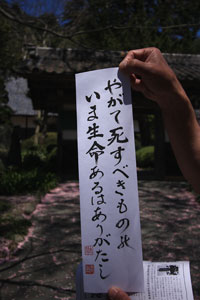 やがて死すべきもの能
いま生命あるはありがたし